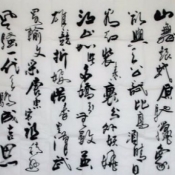 山舞銀蛇原馳蠟象
欲與天公試比高須晴日
看紅裝素裹分外妖嬈
江山如此多嬌引無數英
雄競折腰惜秦皇漢武
略輸文采唐宗宋祖稍遜
風騷一代天驕成吉思